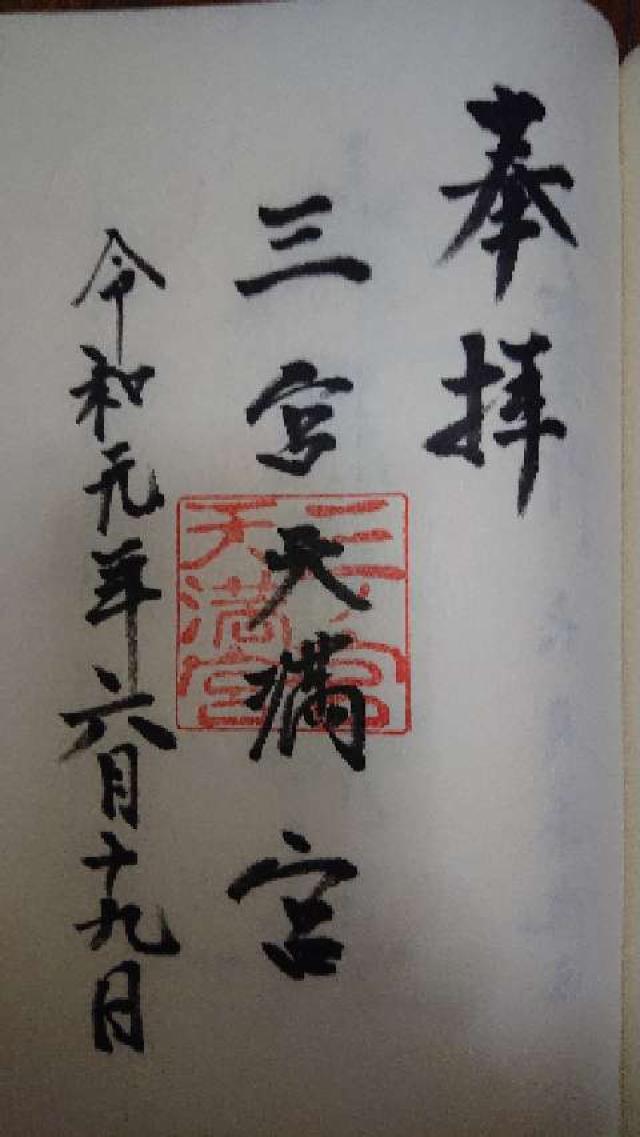 奉拝
三宮天満宮
三ノ宮
天満宮
令和元年六月十九日